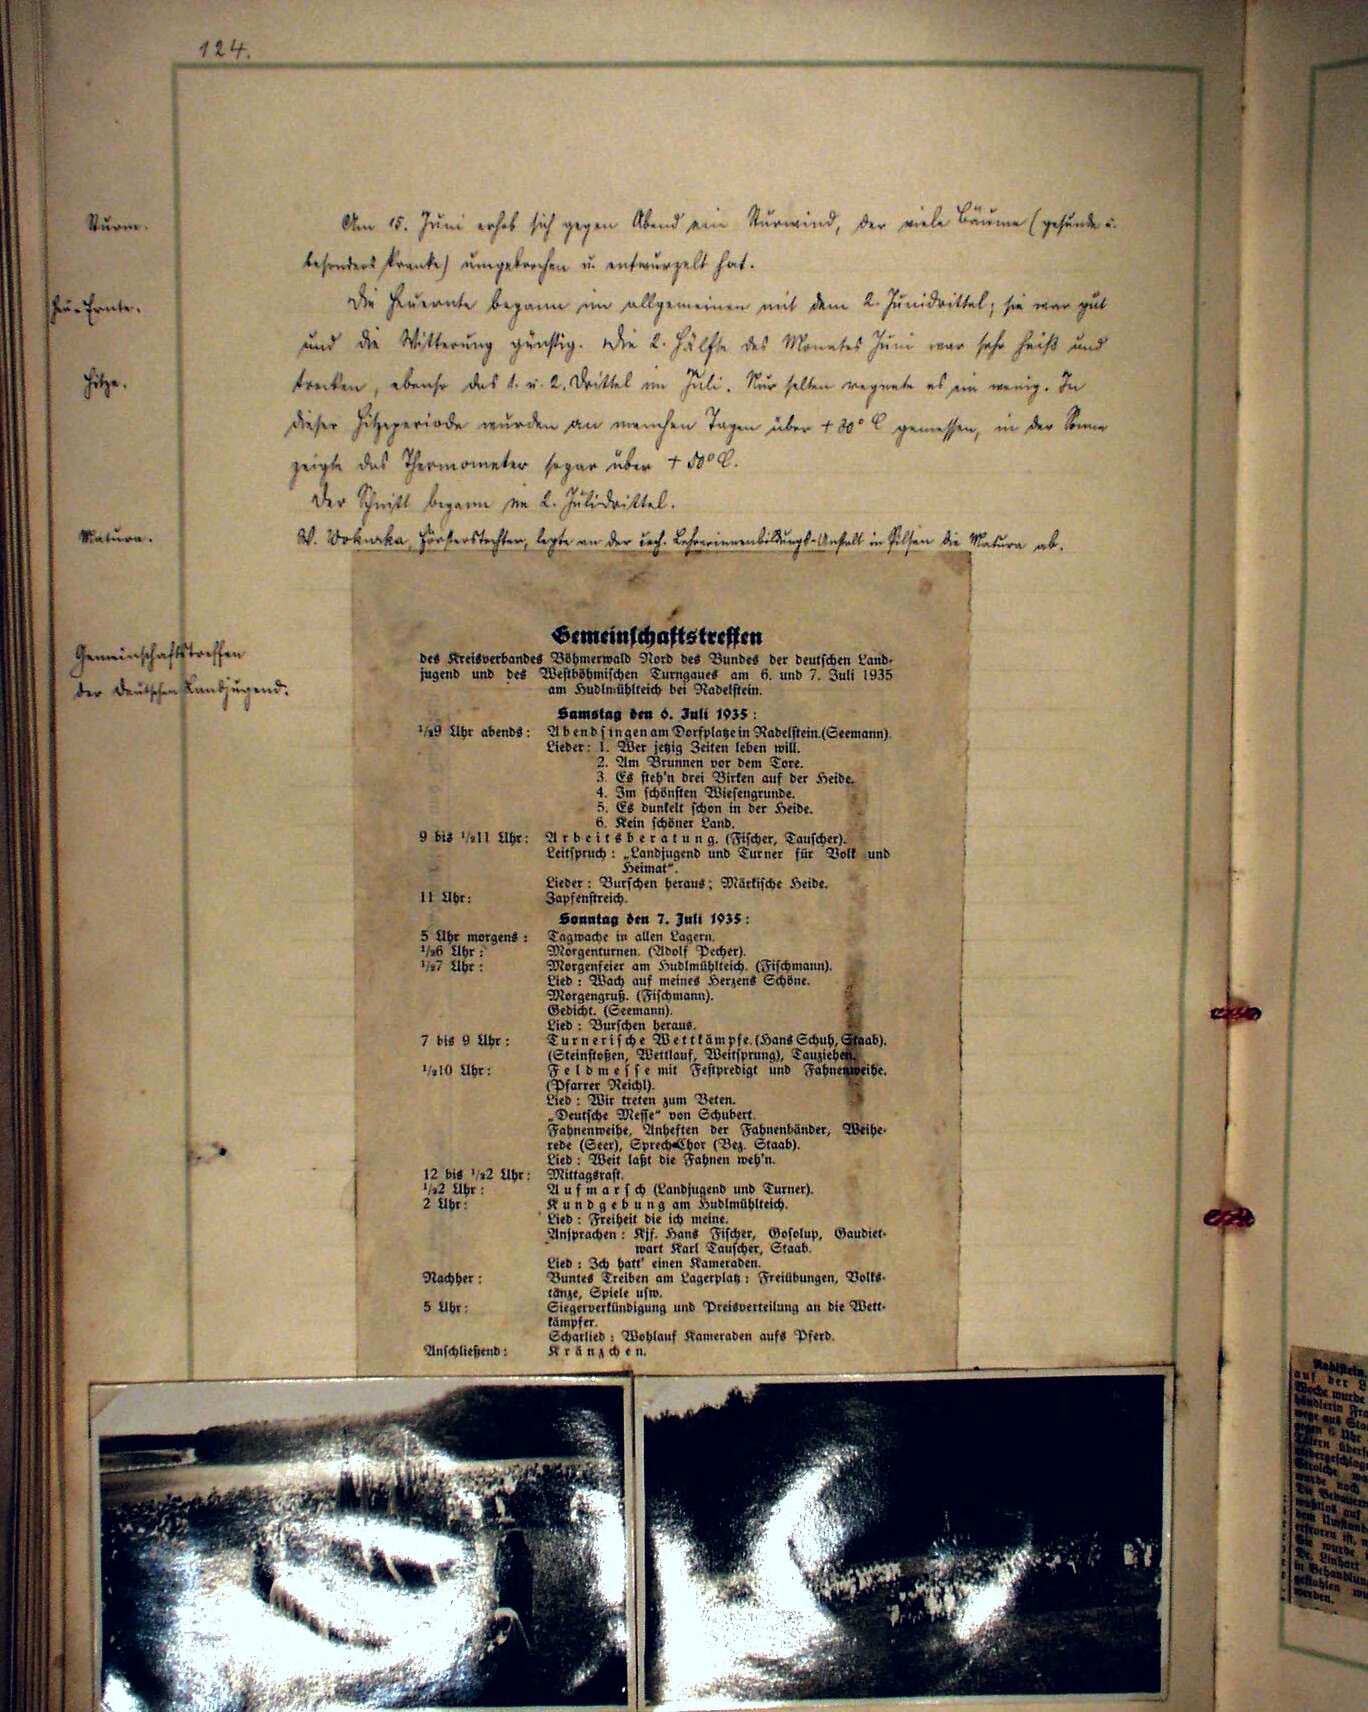 124.
Sturm.
Am 15. Juni erhob sich gegen Abend ein Sturwind, der viele Bäume (gesunde u.
besonders kranke) umgebrochen u. entwurzelt hat.
Heu-Ernte.
Die Heuernte begann im allgemeinen mit dem 2. Junidrittel; sie war gut
und die Witterung günstig. Die 2. Hälfte des Monates Juni war sehr heiß und
Hitze.
trocken, ebenso das 1. u. 2. Drittel im Juli. Nur selten regnete es ein wenig. In
dieser Hitzeperiode wurden an manchen Tagen über + 30° C gemessen, in der Sonne
zeigte das Thermometer sogar über + 50° C.
Der Schnitt begann im 2. Julidrittel.
Matura.
W. Försterstochter, legte an der Lehrerinnenbildungs-Anstalt in Pilsen die Matura ab.
Gemeinschaftstreffen
der deutschen Landjugend.
Gemeinschaftstreffen
des Kreisverbandes Böhmerwald Nord des Bundes der deutschen Land-
jugend und des Westböhmischen Turngaues am 6. und 7. Juli 1935
am Hudlmühlteich bei Radelstein.
Samstag den 6. Juli 1935:
1/29 Uhr abends: Abendsingen am Dorfplatze in Radelstein. (Seemann).
Lieder: 1. Wer jetzig Zeiten leben will.
2. Am Brunnen vor dem Tore.
3. Es steh'n drei Birken auf der Heide.
4. Im schönsten Wiesengrunde.
5. Es dunkelt schon in der Heide.
6. Kein schöner Land.
9 bis 1/211 Uhr: Arbeitsberatung. (Fischer, Tauscher).
Leitspruch: „Landjugend und Turner für Volk und
Heimat“.
Lieder: Burschen heraus; Märkische Heide.
11 Uhr: Zapfenstreich.
Sonntag den 7. Juli 1935:
5 Uhr morgens: Tagwache in allen Lagern.
1/26 Uhr: Morgenturnen. (Adolf Pecher).
1/27 Uhr: Morgenfeier am Hudlmühlteich. (Fischmann).
Lied: Wach auf meines Herzens Schöne.
Morgengruß. (Fischmann).
Gedicht. (Seemann).
Lied: Burschen heraus.
7 bis 9 Uhr: Turnerische Wettkämpfe. (Hans Schuh, Staab).
(Steinstoßen, Wettlauf, Weitsprung), Tauziehen.
1/210 Uhr: Feldmesse mit Festpredigt und Fahnenweihe.
(Pfarrer Reichl).
Lied: Wir treten zum Beten.
„Deutsche Messe“ von Schubert.
Fahnenweihe, Anheften der Fahnenbänder, Weihe-
rede (Seer), Sprech-Chor (Bez. Staab).
Lied: Weit laßt die Fahnen weh'n.
12 bis 1/22 Uhr: Mittagsrast.
1/22 Uhr: Aufmarsch (Landjugend und Turner).
2 Uhr: Kundgebung am Hudlmühlteich.
Lied: Freiheit die ich meine.
Ansprachen: Kjf. Hans Fischer, Gosolup, Gaudiet-
wart Karl Tauscher, Staab.
Lied: Ich hatt' einen Kameraden.
Nachher: Buntes Treiben am Lagerplatz: Freiübungen, Volks-
tänze, Spiele usw.
5 Uhr: Siegerverkündigung und Preisverteilung an die Wett-
kämpfer.
Scharlied: Wohlauf Kameraden aufs Pferd.
Anschließend: Kränzchen.
Radlstein.
auf der
Woche wurde
händlerin
wege aus
gegen 6 Uhr
Tätern
Strolche
wurde noch
Die
auf
dem
erfroren ist,
Sie wurde
Dr. Linhart
in Behandlung
gestohlen
werden.